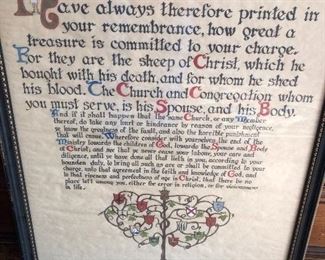 Have always therefore printed in
your remembrance, how great a
treasure is committed to your charge.
For they are the sheep of Christ, which he
bought with his death, and for whom he shed
his blood. The Church and Congregation whom
you must serve, is his Spouse, and his Body.
And if it shall happen that the same Church, or any Member
thereof, do take any hurt or hindrance by reason of your negligence,
ye know the greatness of the fault, and also the horrible punishment
that will ensue. Wherefore consider with yourselves the end of the
Ministry towards the children of God, towards the Spouse and Body
of Christ; and see that ye never cease your labour, your care and
diligence, until ye have done all that lieth in you, according to your
bounden duty, to bring all such as are or shall be committed to your
charge, unto that agreement in the faith and knowledge of God, and
to that ripeness and perfectness of age in Christ, that there be no
place left among you, either for error in religion, or for viciousness
in life.